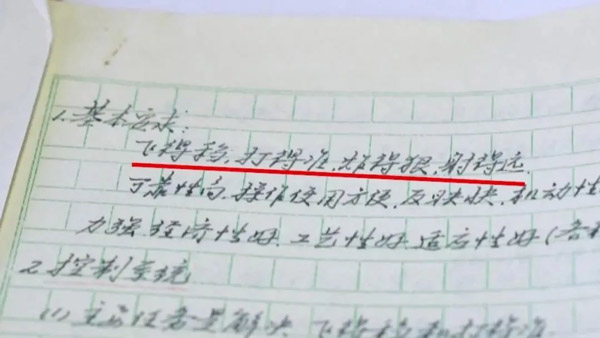 1.基本要求:
飞得稳,打得准,炸得狠,射得远.
可靠性高,操作使用方便,反映快,机动性
力强 经济性好,工艺性好 适应性好(各种
2.控制系统
(1)主要任务是解决飞得稳和打得准